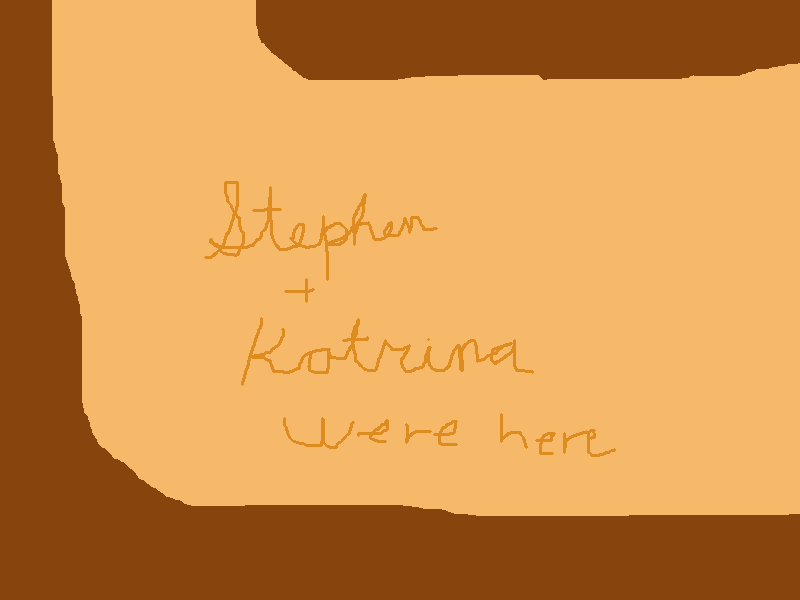 Stephen
+
Katrina
were here